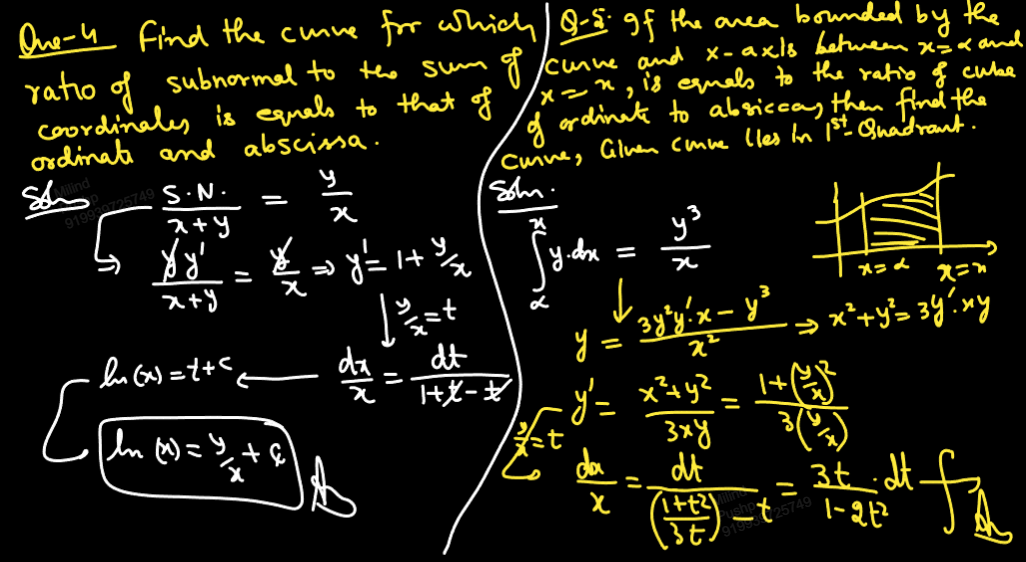 Que-4 Find the curve for which
ratio of subnormal to the sum of
coordinates is equals to that of
ordinate and abscissa.
Soln
S.N. / x+y = y/x
⇒ yy' / x+y = y/x ⇒ y' = 1 + y/x
↓ y/x = t
dx/x = dt / 1+t-t
ln(x) = t+c
ln(x) = y/x + c
Q-5. If the area bounded by the
curve and x-axis between x=α and
x=x, is equals to the ratio of cube
of ordinate to absicca, then find the
curve, Given curve lies in 1st-Quadrant.
Soln.
∫_α^x y.dx = y³/x
x=α x=x
y = 3y²y'.x - y³ / x² ⇒ x²+y² = 3y'.xy
y' = x²+y² / 3xy = 1+(y/x)² / 3(y/x)
y/x = t
dx/x = dt / (1+t²/3t) - t = 3t/1-2t² .dt ∫
Millind
Pushp
919939725749
Millind
Pushp
919939725749